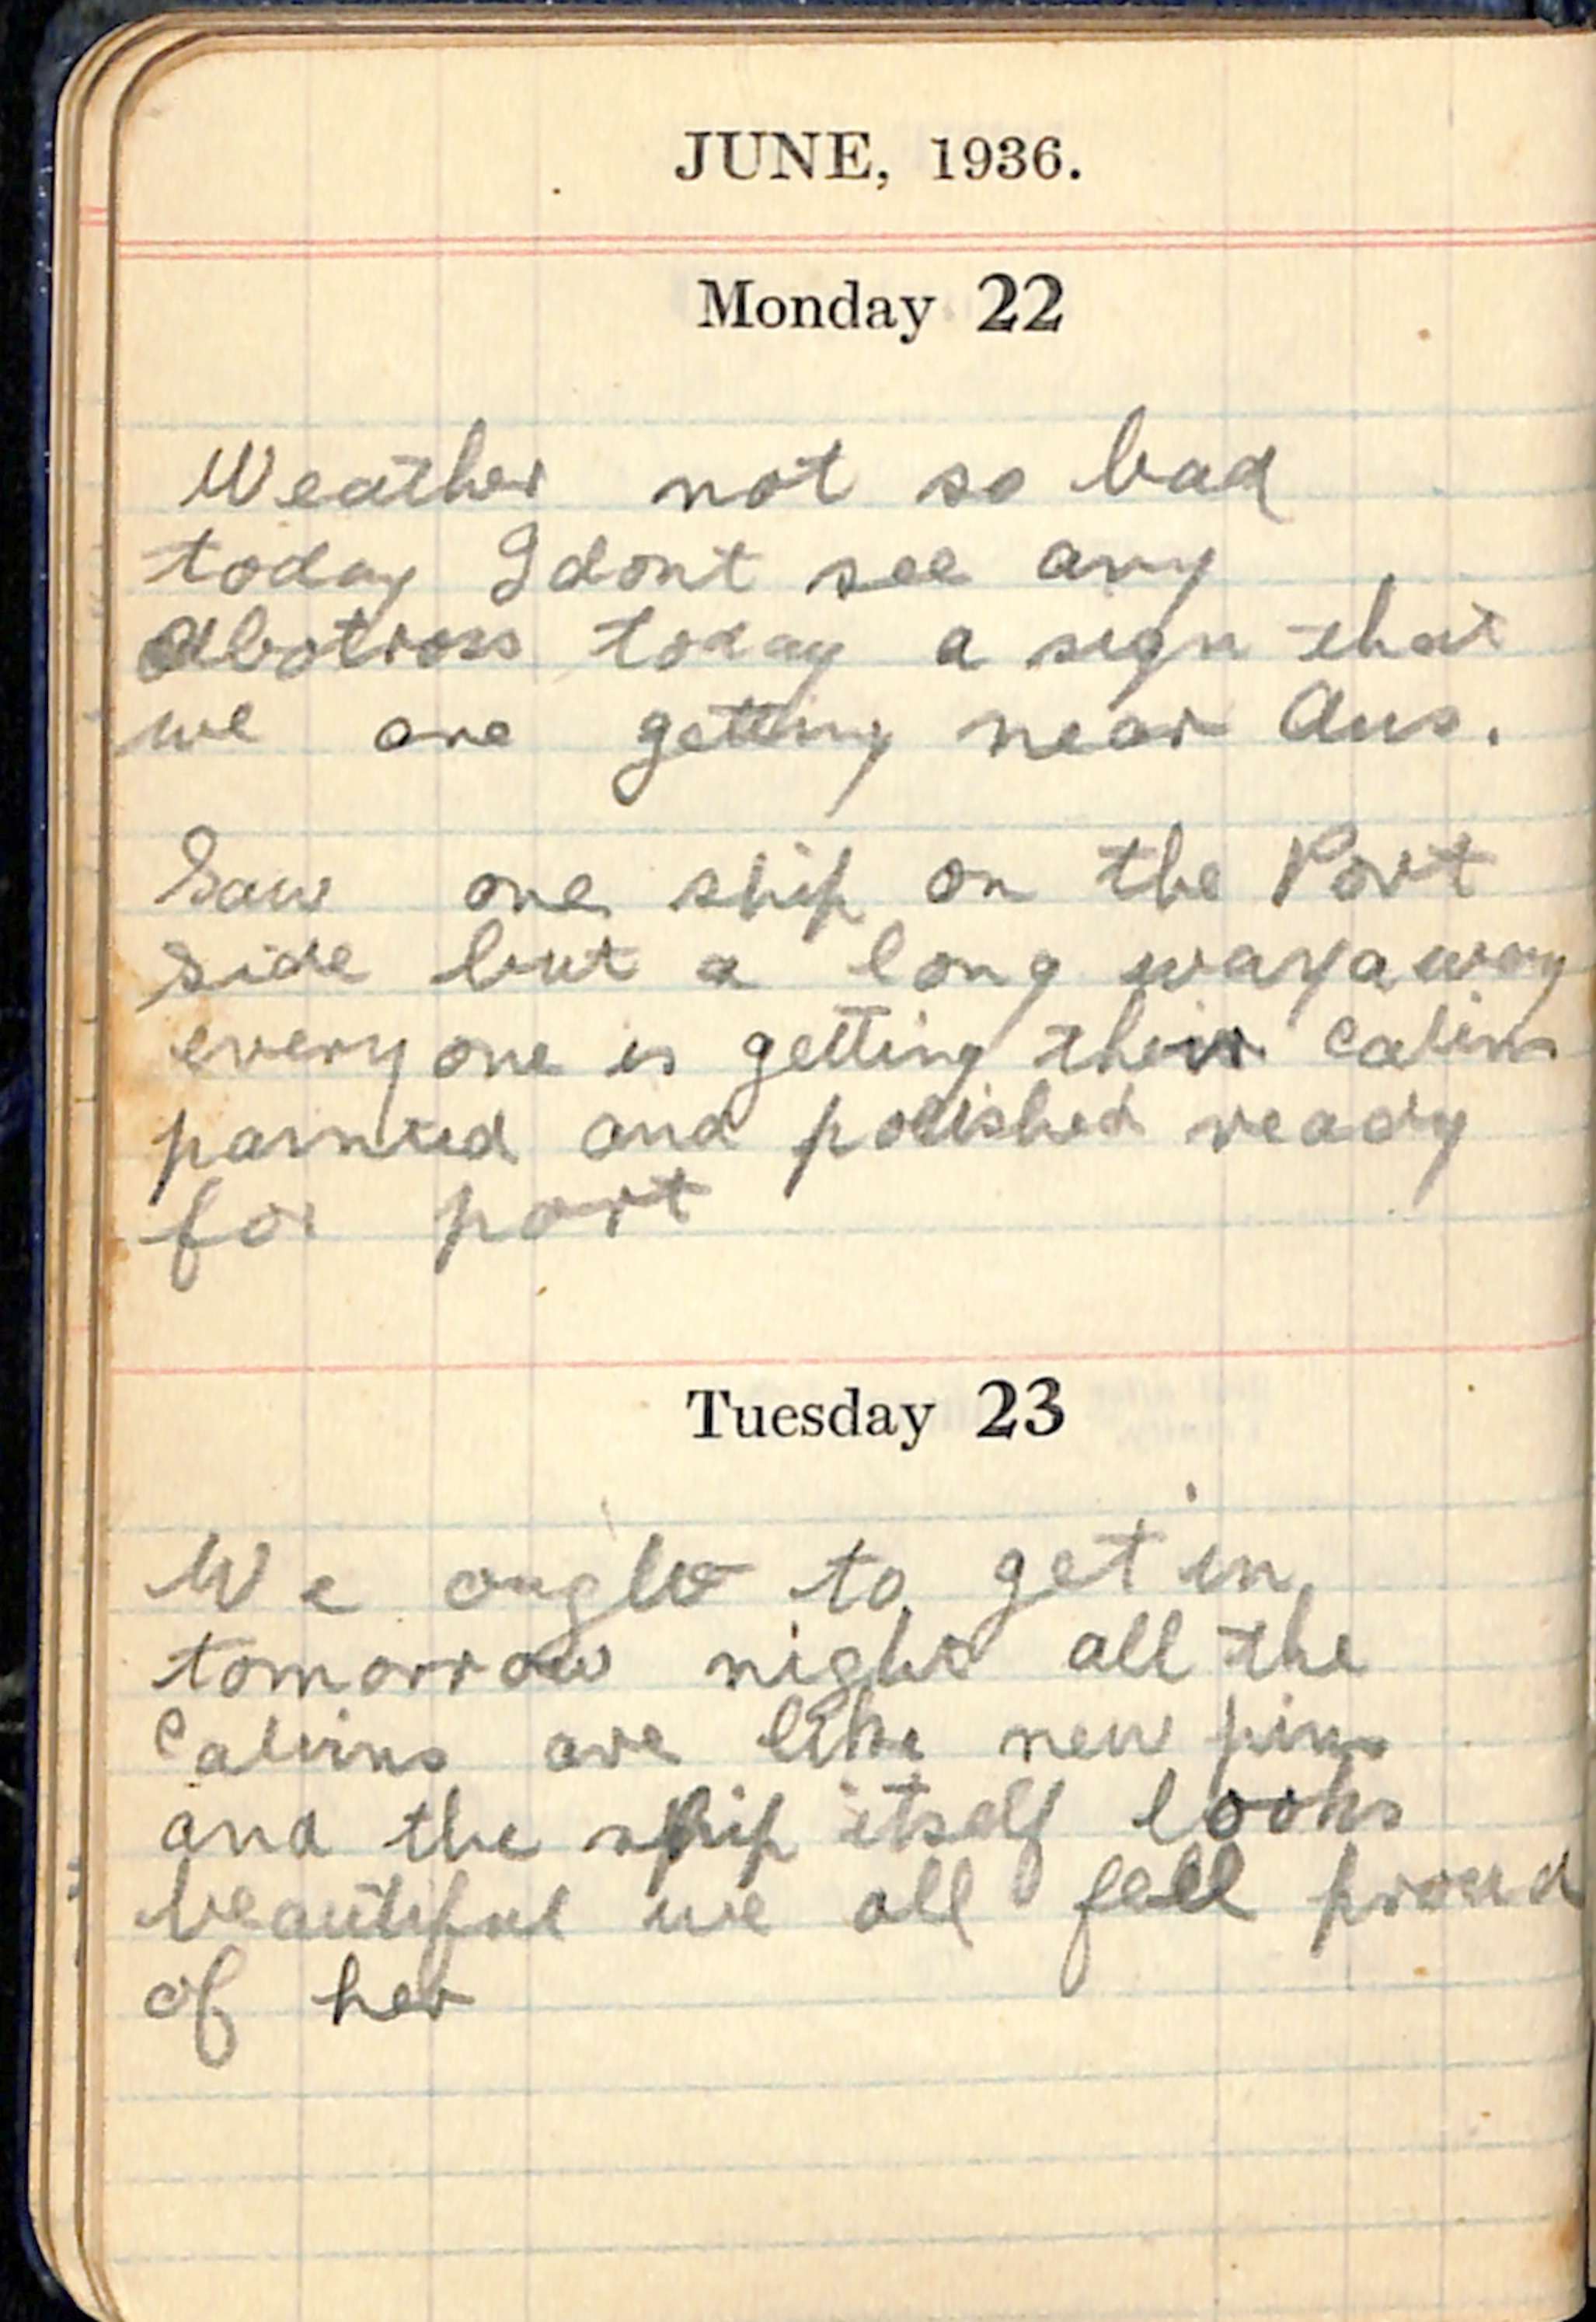 JUNE, 1936.
Monday 22
Weather not so bad
today I dont see any
Albotross today a sign that
we are getting near Aus.
Saw one ship on the Port
side but a long way away
everyone is getting their cabins
painted and polished ready
for port
Tuesday 23
We ought to get in
tomorrow night all the
Cabins are like new pins
and the ship itself looks
beautiful we all fell proud
of her